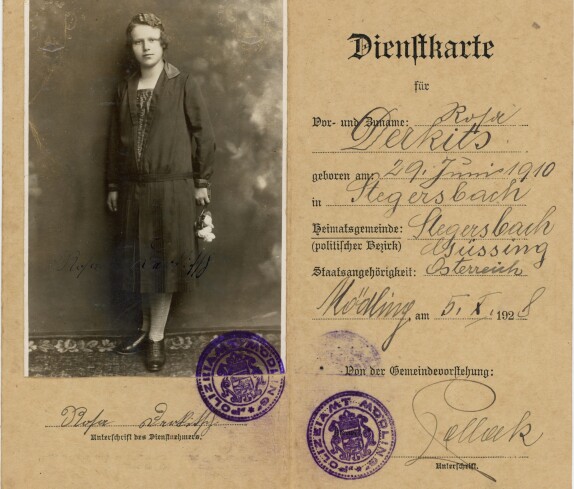 Dienstkarte
für
Vor- und Zuname: Rosa
Derkits
geboren am: 29. Juni 1910
in Stegersbach
Heimatsgemeinde: Stegersbach
(politischer Bezirk) Güssing
Staatsangehörigkeit: Österreich
Mödling am 5. X. 1928
Von der Gemeindevorstehung:
Pollack
Unterschrift.
Rosa
Rosa
Unterschrift des Dienstnehmers.
POLIZEIAMT MÖDLING
POLIZEIAMT MÖDLING